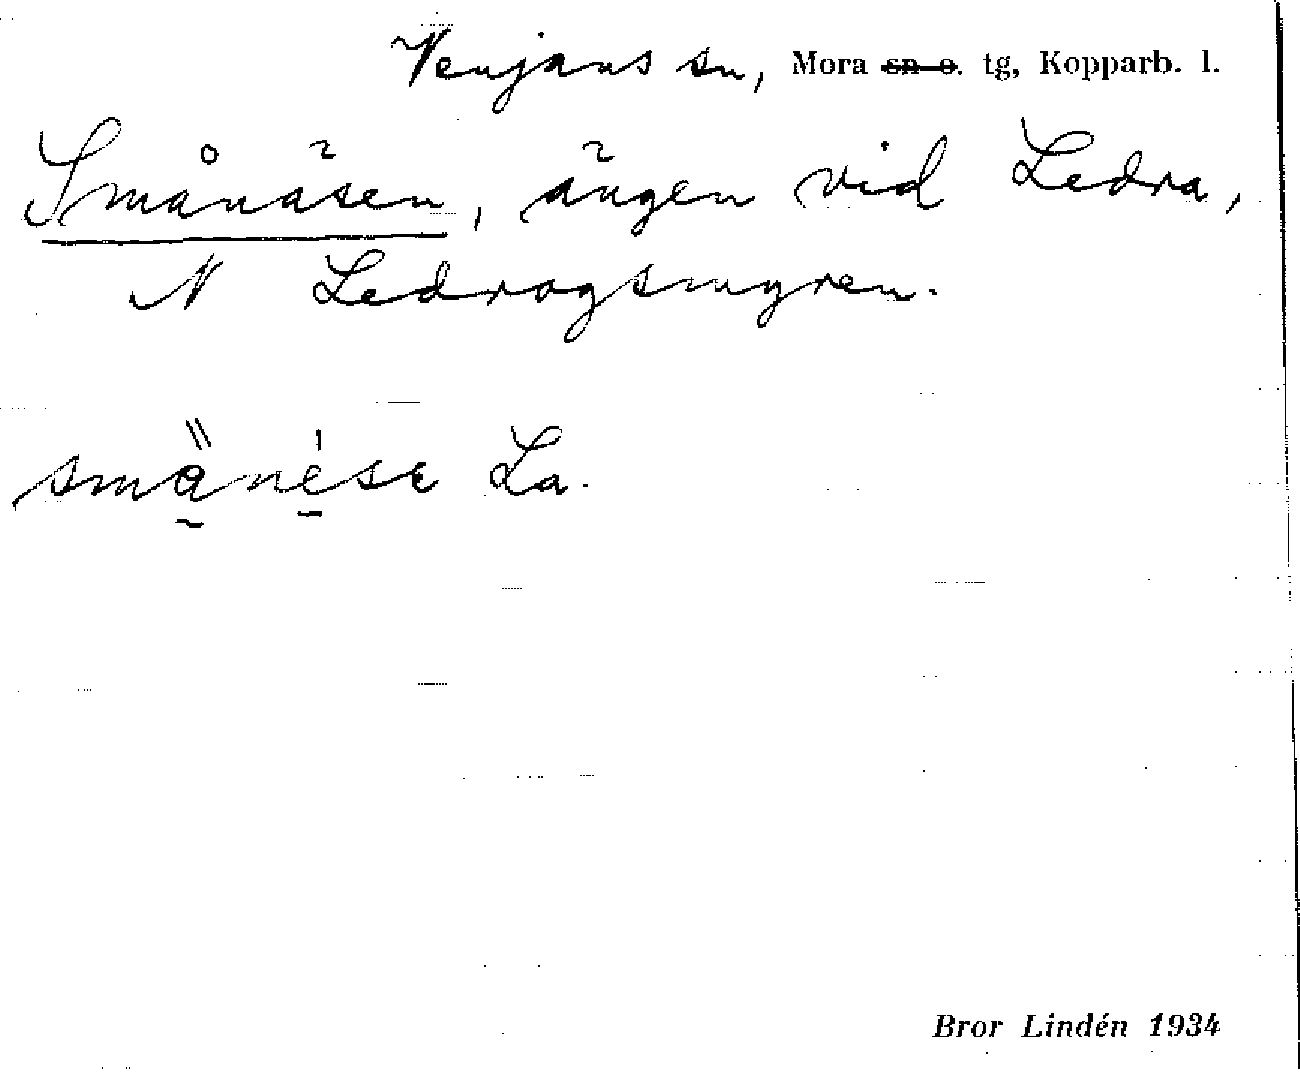 Venjans sn, Mora sn o. tg, Kopparb. l.
Smånäsen, ängen vid Ledra,
N Ledrogsmyren.
La.
Bror Lindén 1934